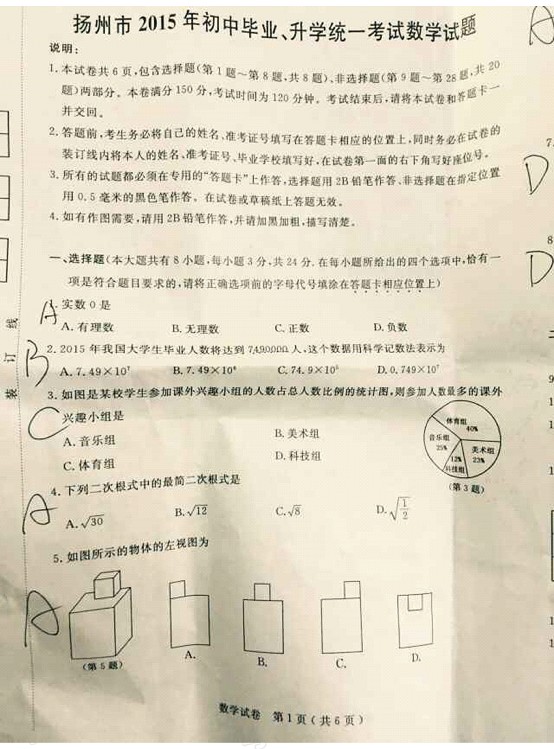 扬州市2015年初中毕业、升学统一考试数学试题
说明:
1.本试卷共6页,包含选择题(第1题~第8题,共8题)、非选择题(第9题~第28题,共20
题)两部分。本卷满分150分,考试时间为120分钟。考试结束后,请将本试卷和答题卡一
并交回。
2.答题前,考生务必将自己的姓名、准考证号填写在答题卡相应的位置上,同时务必在试卷的
装订线内将本人的姓名、准考证号、毕业学校填写好,在试卷第一面的右下角写好座位号。
3.所有的试题都必须在专用的“答题卡”上作答,选择题用2B铅笔作答、非选择题在指定位置
用0.5毫米的黑色笔作答。在试卷或草稿纸上答题无效。
4.如有作图需要,请用2B铅笔作答,并请加黑加粗,描写清楚。
一、选择题(本大题共有8小题,每小题3分,共24分.在每小题所给出的四个选项中,恰有一
项是符合题目要求的,请将正确选项前的字母代号填涂在答题卡相应位置上)
A
1.实数0是
A.有理数 B.无理数 C.正数 D.负数
B
2.2015年我国大学生毕业人数将达到7490000人,这个数据用科学记数法表示为
A.7.49×10⁷ B.7.49×10⁶ C.74.9×10⁵ D.0.749×10⁷
3.如图是某校学生参加课外兴趣小组的人数占总人数比例的统计图,则参加人数最多的课外
C
兴趣小组是
A.音乐组 B.美术组
C.体育组 D.科技组
体育组
40%
音乐组
25%
美术组
23%
12%
科技组
(第3题)
4.下列二次根式中的最简二次根式是
A
A.√30 B.√12 C.√8 D.√(1/2)
5.如图所示的物体的左视图为
A
(第5题)
A. B. C. D.
数学试卷 第1页(共6页)
线
订
装
A
7.
D
8
D
9
1
1
1
1
1